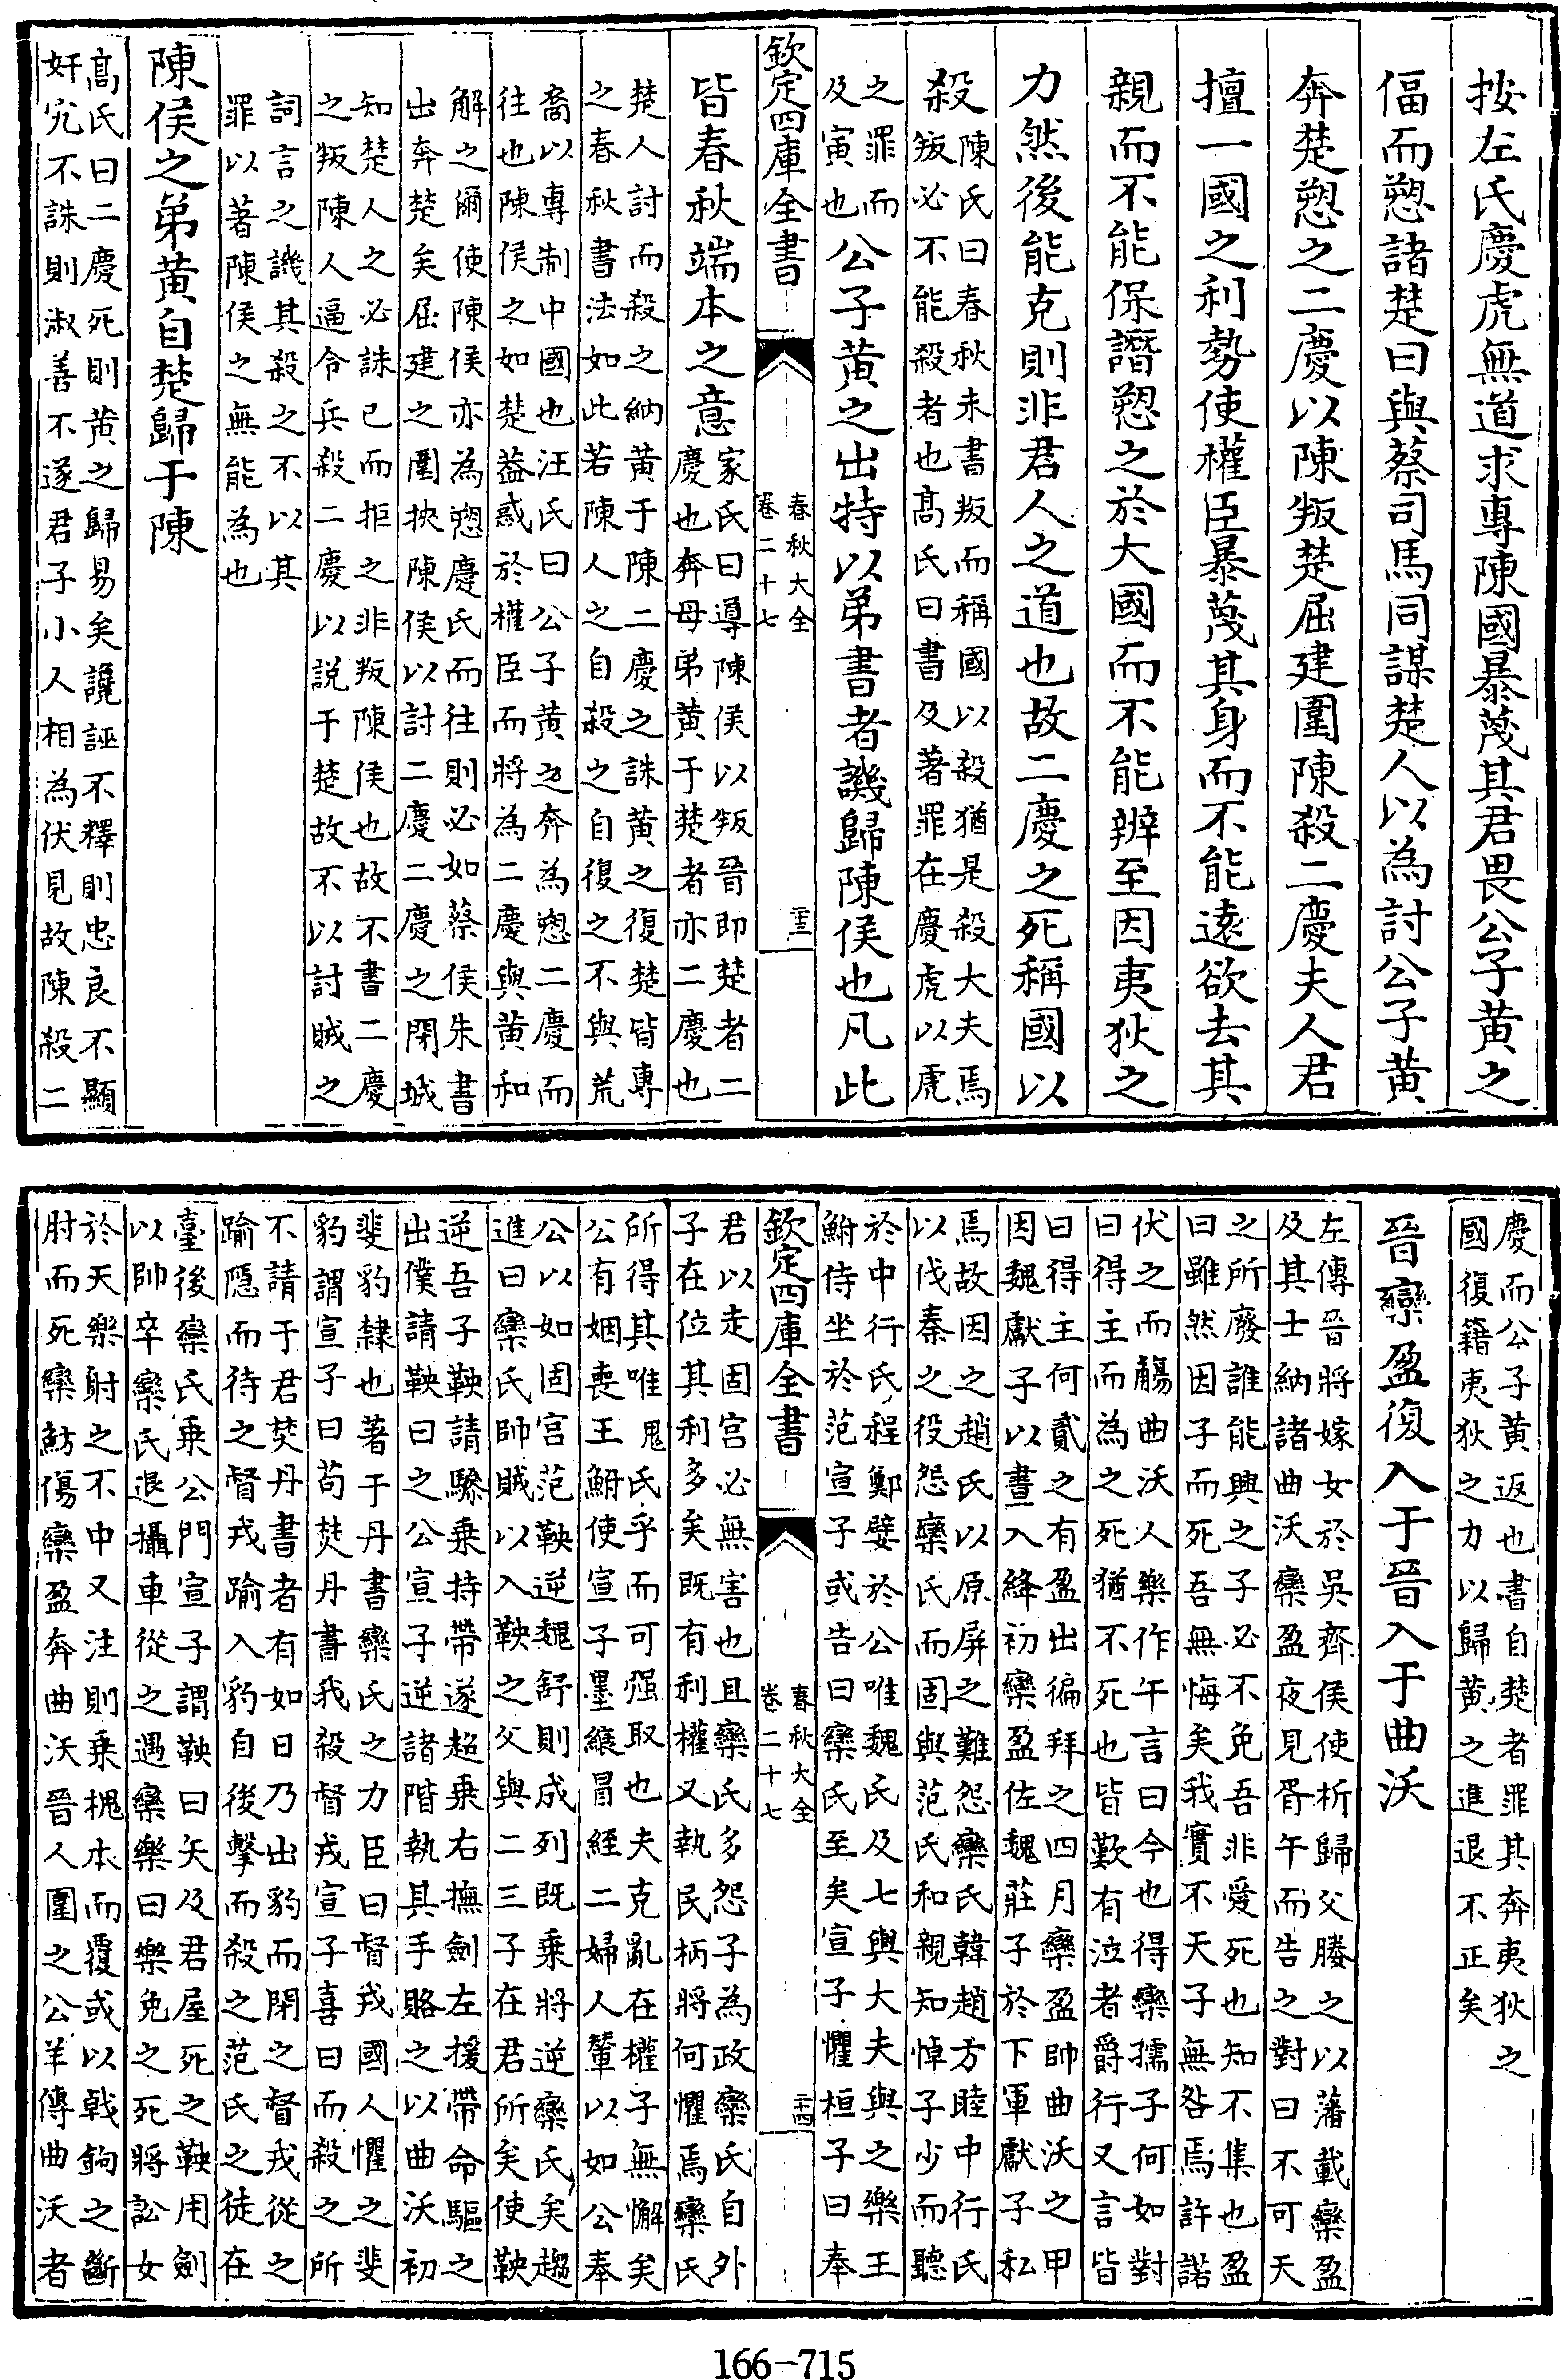 按左氏慶虎無道求專陳國暴蔑其君畏公子黄之
偪而愬諸楚曰與蔡司馬同謀楚人以為討公子黄
奔楚愬之二慶以陳叛楚屈建圍陳殺二慶夫人君
擅一國之利勢使權臣暴蔑其身而不能遠欲去其
親而不能保譖愬之於大國而不能辨至因夷狄之
力然後能克則非君人之道也故二慶之死稱國以
殺陳氏曰春秋未書叛而稱國以殺猶是殺大夫焉
叛必不能殺者也髙氏曰書及著罪在慶虎以虎
之罪而
及寅也公子黄之出特以弟書者譏歸陳侯也凡此
欽定四庫全書
春秋大全
卷二十七
二十三
皆春秋端本之意家氏曰導陳侯以叛晉即楚者二
慶也奔母弟黄于楚者亦二慶也
楚人討而殺之納黄于陳二慶之誅黄之復楚皆專
之春秋書法如此若陳人之自殺之自復之不與荒
裔以專制中國也汪氏曰公子黄之奔為愬二慶而
往也陳侯之如楚益惑於權臣而將為二慶與黄和
解之爾使陳侯亦為愬慶氏而往則必如蔡侯朱書
出奔楚矣屈建之圍挾陳侯以討二慶二慶之閉城
知楚人之必誅已而拒之非叛陳侯也故不書二慶
之叛陳人逼令兵殺二慶以説于楚故不以討賊之
詞言之譏其殺之不以其
罪以著陳侯之無能為也
陳侯之弟黄自楚歸于陳
髙氏曰二慶死則黄之歸易矣讒誣不釋則忠良不顯
奸宄不誅則淑善不遂君子小人相為伏見故陳殺二
慶而公子黄返也書自楚者罪其奔夷狄之
國復籍夷狄之力以歸黄之進退不正矣
晉欒盈復入于晉入于曲沃
左傳晉將嫁女於吳齊侯使析歸父媵之以藩載欒盈
及其士納諸曲沃欒盈夜見胥午而告之對曰不可天
之所廢誰能興之子必不免吾非愛死也知不集也盈
曰雖然因子而死吾無悔矣我實不天子無咎焉許諾
伏之而觴曲沃人樂作午言曰今也得欒孺子何如對
曰得主而為之死猶不死也皆歎有泣者爵行又言皆
曰得主何貳之有盈出徧拜之四月欒盈帥曲沃之甲
因魏獻子以晝入絳初欒盈佐魏莊子於下軍獻子私
焉故因之趙氏以原屏之難怨欒氏韓趙方睦中行氏
以伐秦之役怨欒氏而固與范氏和親知悼子少而聽
於中行氏程鄭嬖於公唯魏氏及七輿大夫與之樂王
鮒侍坐於范宣子或告曰欒氏至矣宣子懼桓子曰奉
欽定四庫全書
春秋大全
卷二十七
二十四
君以走固宫必無害也且欒氏多怨子為政欒氏自外
子在位其利多矣既有利權又執民柄將何懼焉欒氏
所得其唯魏氏乎而可强取也夫克亂在權子無懈矣
公有姻喪王鮒使宣子墨縗冒絰二婦人輦以如公奉
公以如固宫范鞅逆魏舒則成列既乘將逆欒氏矣趨
進曰欒氏帥賊以入鞅之父與二三子在君所矣使鞅
逆吾子鞅請驂乘持帶遂超乘右撫劍左援帶命驅之
出僕請鞅曰之公宣子逆諸階執其手賂之以曲沃初
斐豹隸也著于丹書欒氏之力臣曰督戎國人懼之斐
豹謂宣子曰苟焚丹書我殺督戎宣子喜曰而殺之所
不請于君焚丹書者有如日乃出豹而閉之督戎從之
踰隱而待之督戎踰入豹自後擊而殺之范氏之徒在
臺後欒氏乗公門宣子謂鞅曰矢及君屋死之鞅用劍
以帥卒欒氏退攝車從之遇欒樂曰樂免之死將訟女
於天樂射之不中又注則乗槐本而覆或以戟鉤之斷
肘而死欒魴傷欒盈奔曲沃晉人圍之公羊傳曲沃者
166-715